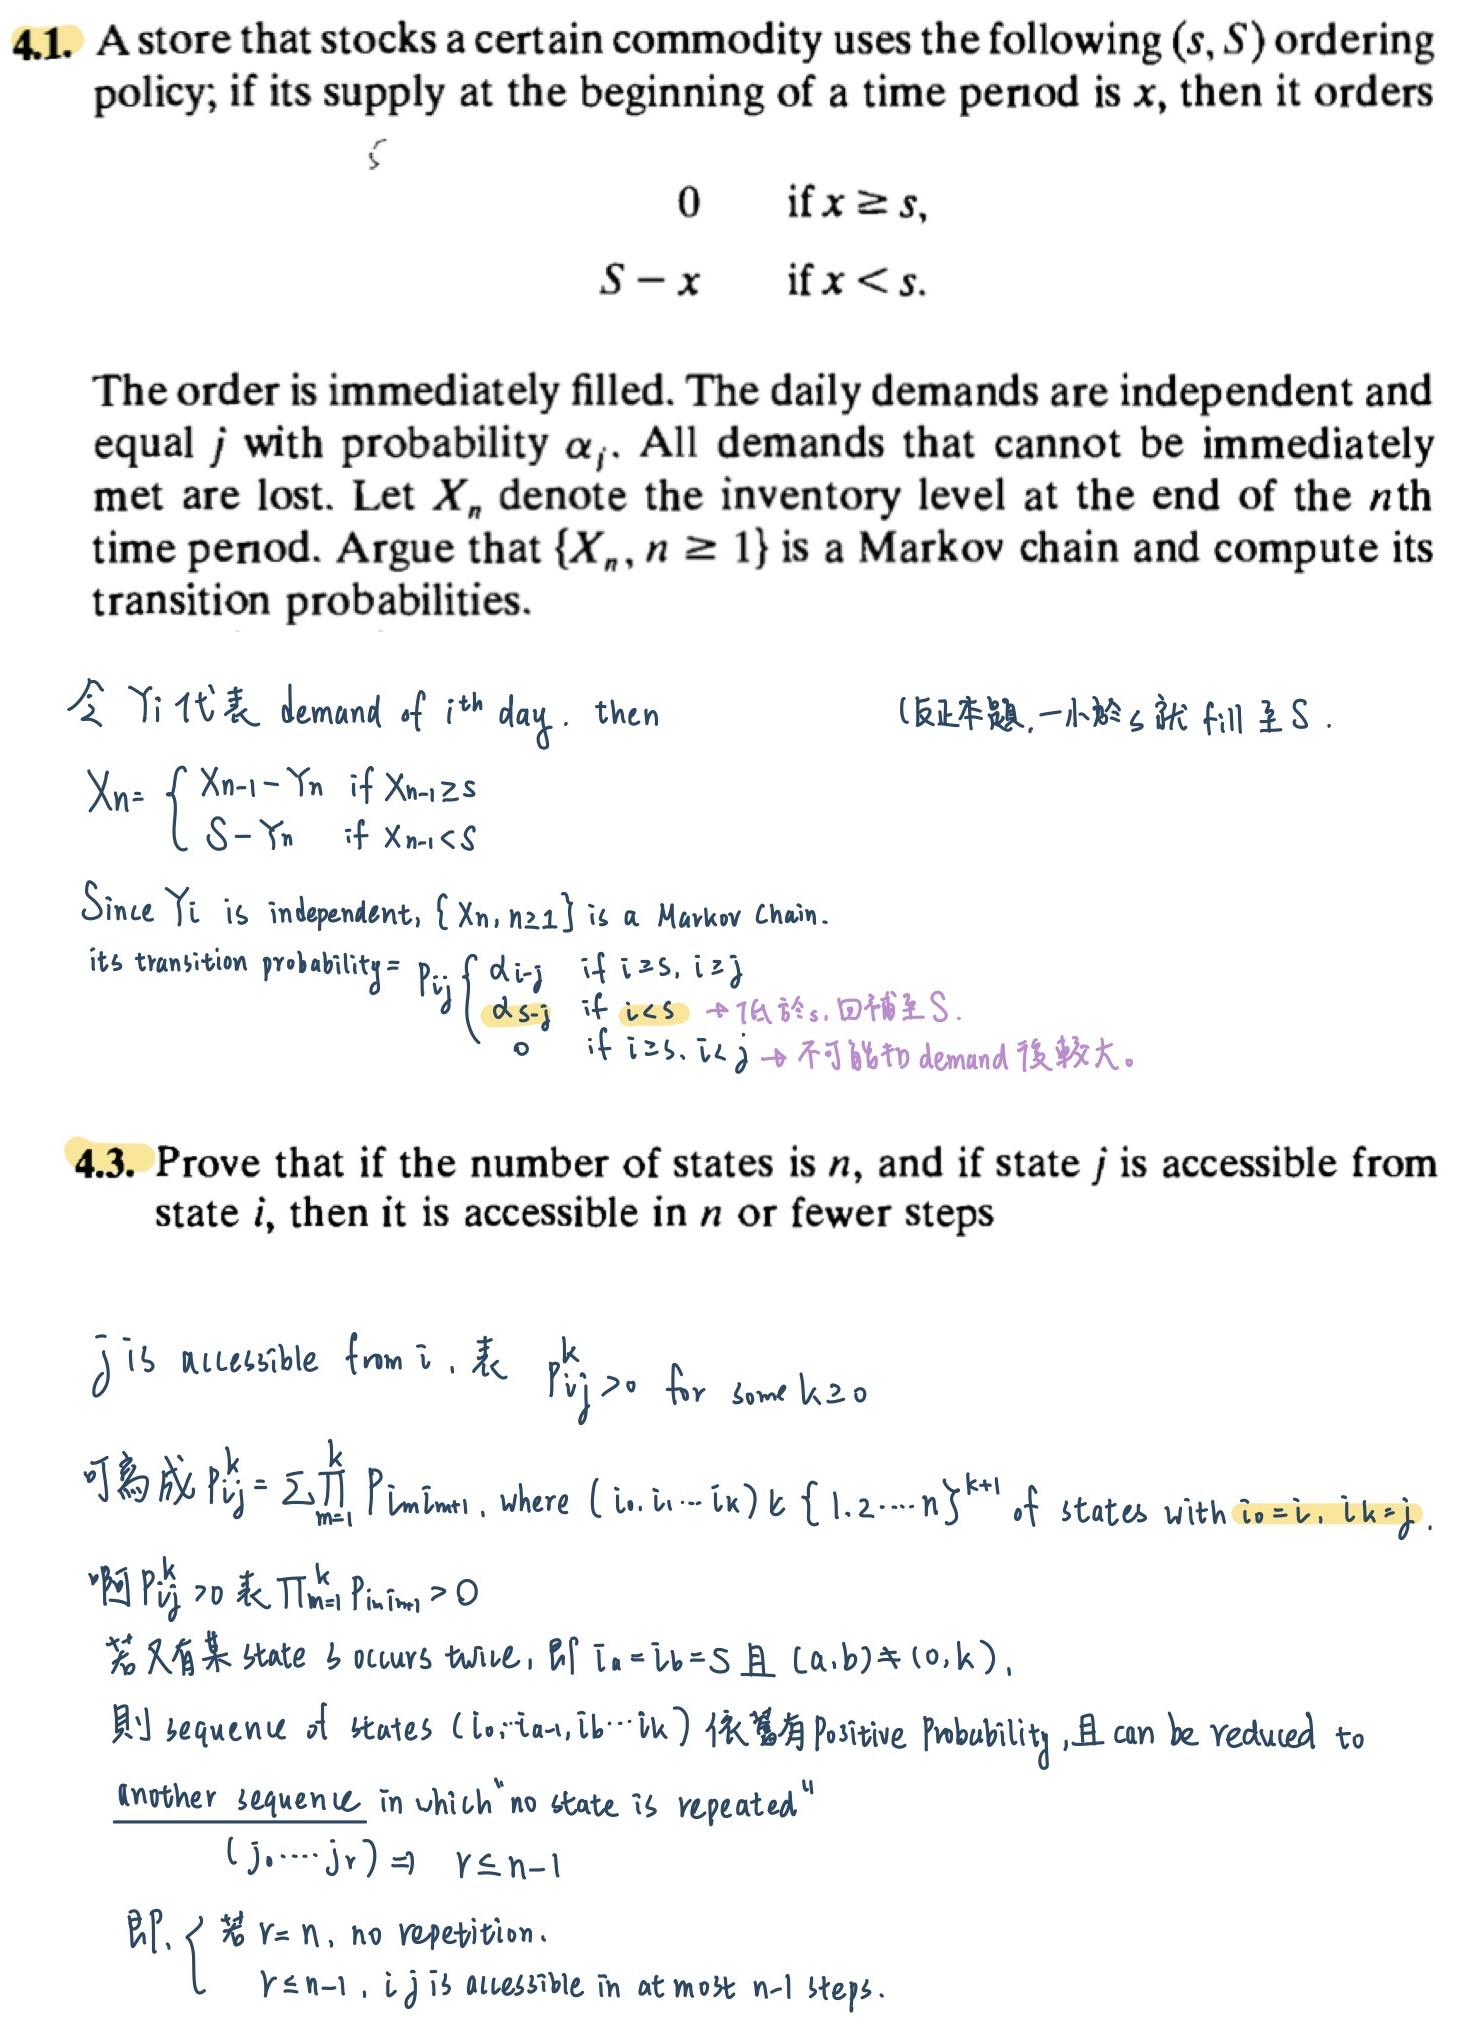 4.1. A store that stocks a certain commodity uses the following (s, S) ordering
policy; if its supply at the beginning of a time period is x, then it orders
s
0 if x ≥ s,
S − x if x < s.
The order is immediately filled. The daily demands are independent and
equal j with probability αj. All demands that cannot be immediately
met are lost. Let Xn denote the inventory level at the end of the nth
time period. Argue that {Xn, n ≥ 1} is a Markov chain and compute its
transition probabilities.
令 Yi 代表 demand of ith day. then (反正本題,一小於 s 就 fill 至 S.
Xn= { Xn-1 − Yn if Xn-1≥s
S − Yn if Xn-1<s
Since Yi is independent, {Xn, n≥1} is a Markov Chain.
its transition probability= Pij { αi-j if i≥s, i≥j
αs-j if i<s → 低於s, 回補至S.
0 if i≥s, i<j → 不可能扣 demand 後較大。
4.3. Prove that if the number of states is n, and if state j is accessible from
state i, then it is accessible in n or fewer steps
j is accessible from i, 表 Pij^k >0 for some k≥0
可寫成 Pij^k = Σ∏_{m=1}^k Pim im+1, where (i0, i1 ... ik) ∈ {1.2....n}^{k+1} of states with i0=i, ik=j.
啊 Pij^k >0 表 ∏_{m=1}^k Pim im+1 >0
若又有某 state s occurs twice, 即 ia = ib = s 且 (a,b) ≠ (0,k),
則 sequence of states (i0,...ia-1, ib...ik) 依舊有 Positive Probability, 且 can be reduced to
another sequence in which "no state is repeated"
(j0....jr) ⇒ r≤n-1
即, { 若 r=n, no repetition.
r≤n-1, i j is accessible in at most n-1 steps.